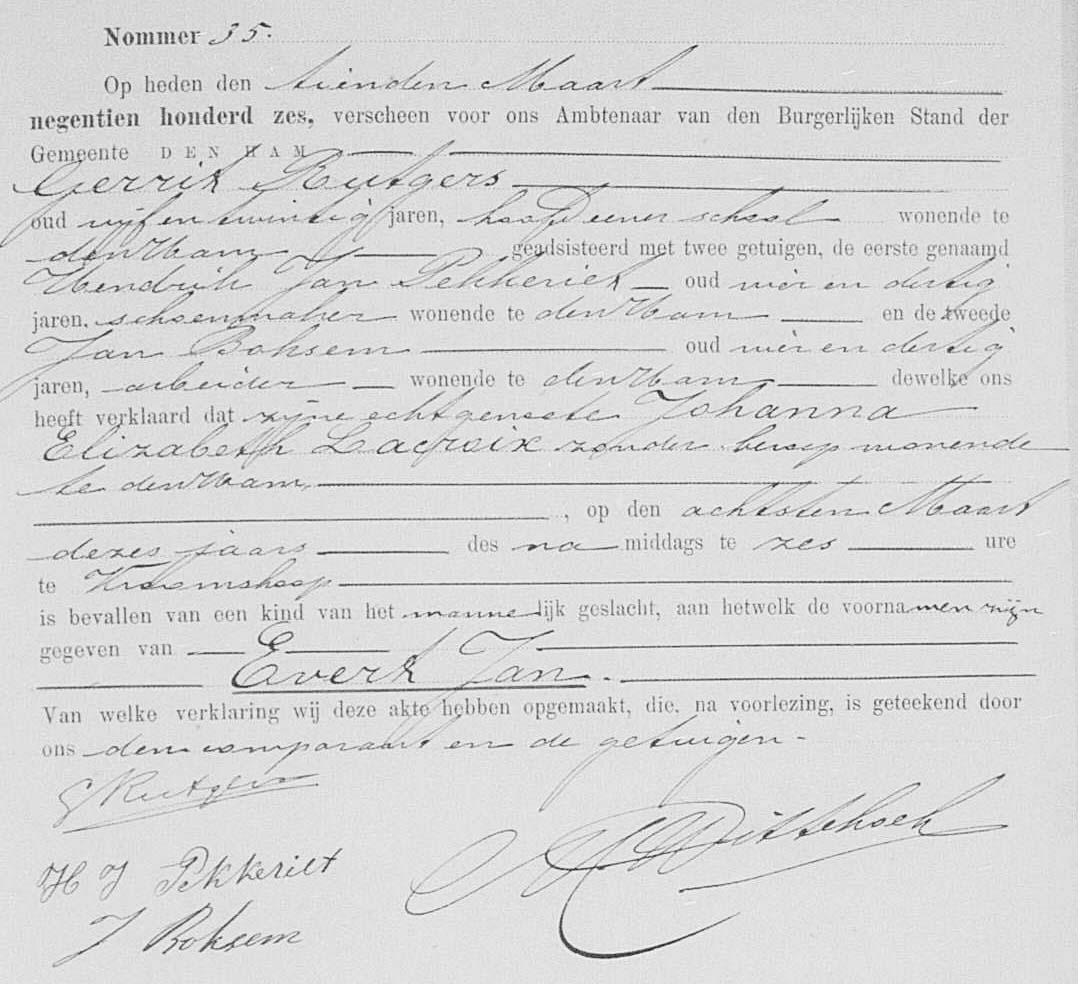 Nommer 35.
Op heden den tienden Maart
negentien honderd zes, verscheen voor ons Ambtenaar van den Burgerlijken Stand der
Gemeente DEN HAM
Gerrit Rutgers
oud vijf en twintig jaren, hoofd eener school wonende te
den Ham geadsisteerd met twee getuigen, de eerste genaamd
Hendrik Jan Pekkeriet oud vier en dertig
jaren, schoenmaker wonende te den Ham en de tweede
Jan Boksem oud vier en dertig
jaren, arbeider wonende te den Ham, dewelke ons
heeft verklaard dat zijne echtgenoote Johanna
Elizabeth Lacroix zonder beroep wonende
te den Ham,
, op den achtsten Maart
dezes jaars des na middags te zes ure
te Vroomshoop
is bevallen van een kind van het mannelijk geslacht, aan hetwelk de voornamen zijn
gegeven van
Evert Jan.
Van welke verklaring wij deze akte hebben opgemaakt, die, na voorlezing, is geteekend door
ons den comparant en de getuigen.
G Rutgers
H J Pekkeriet
J Boksem